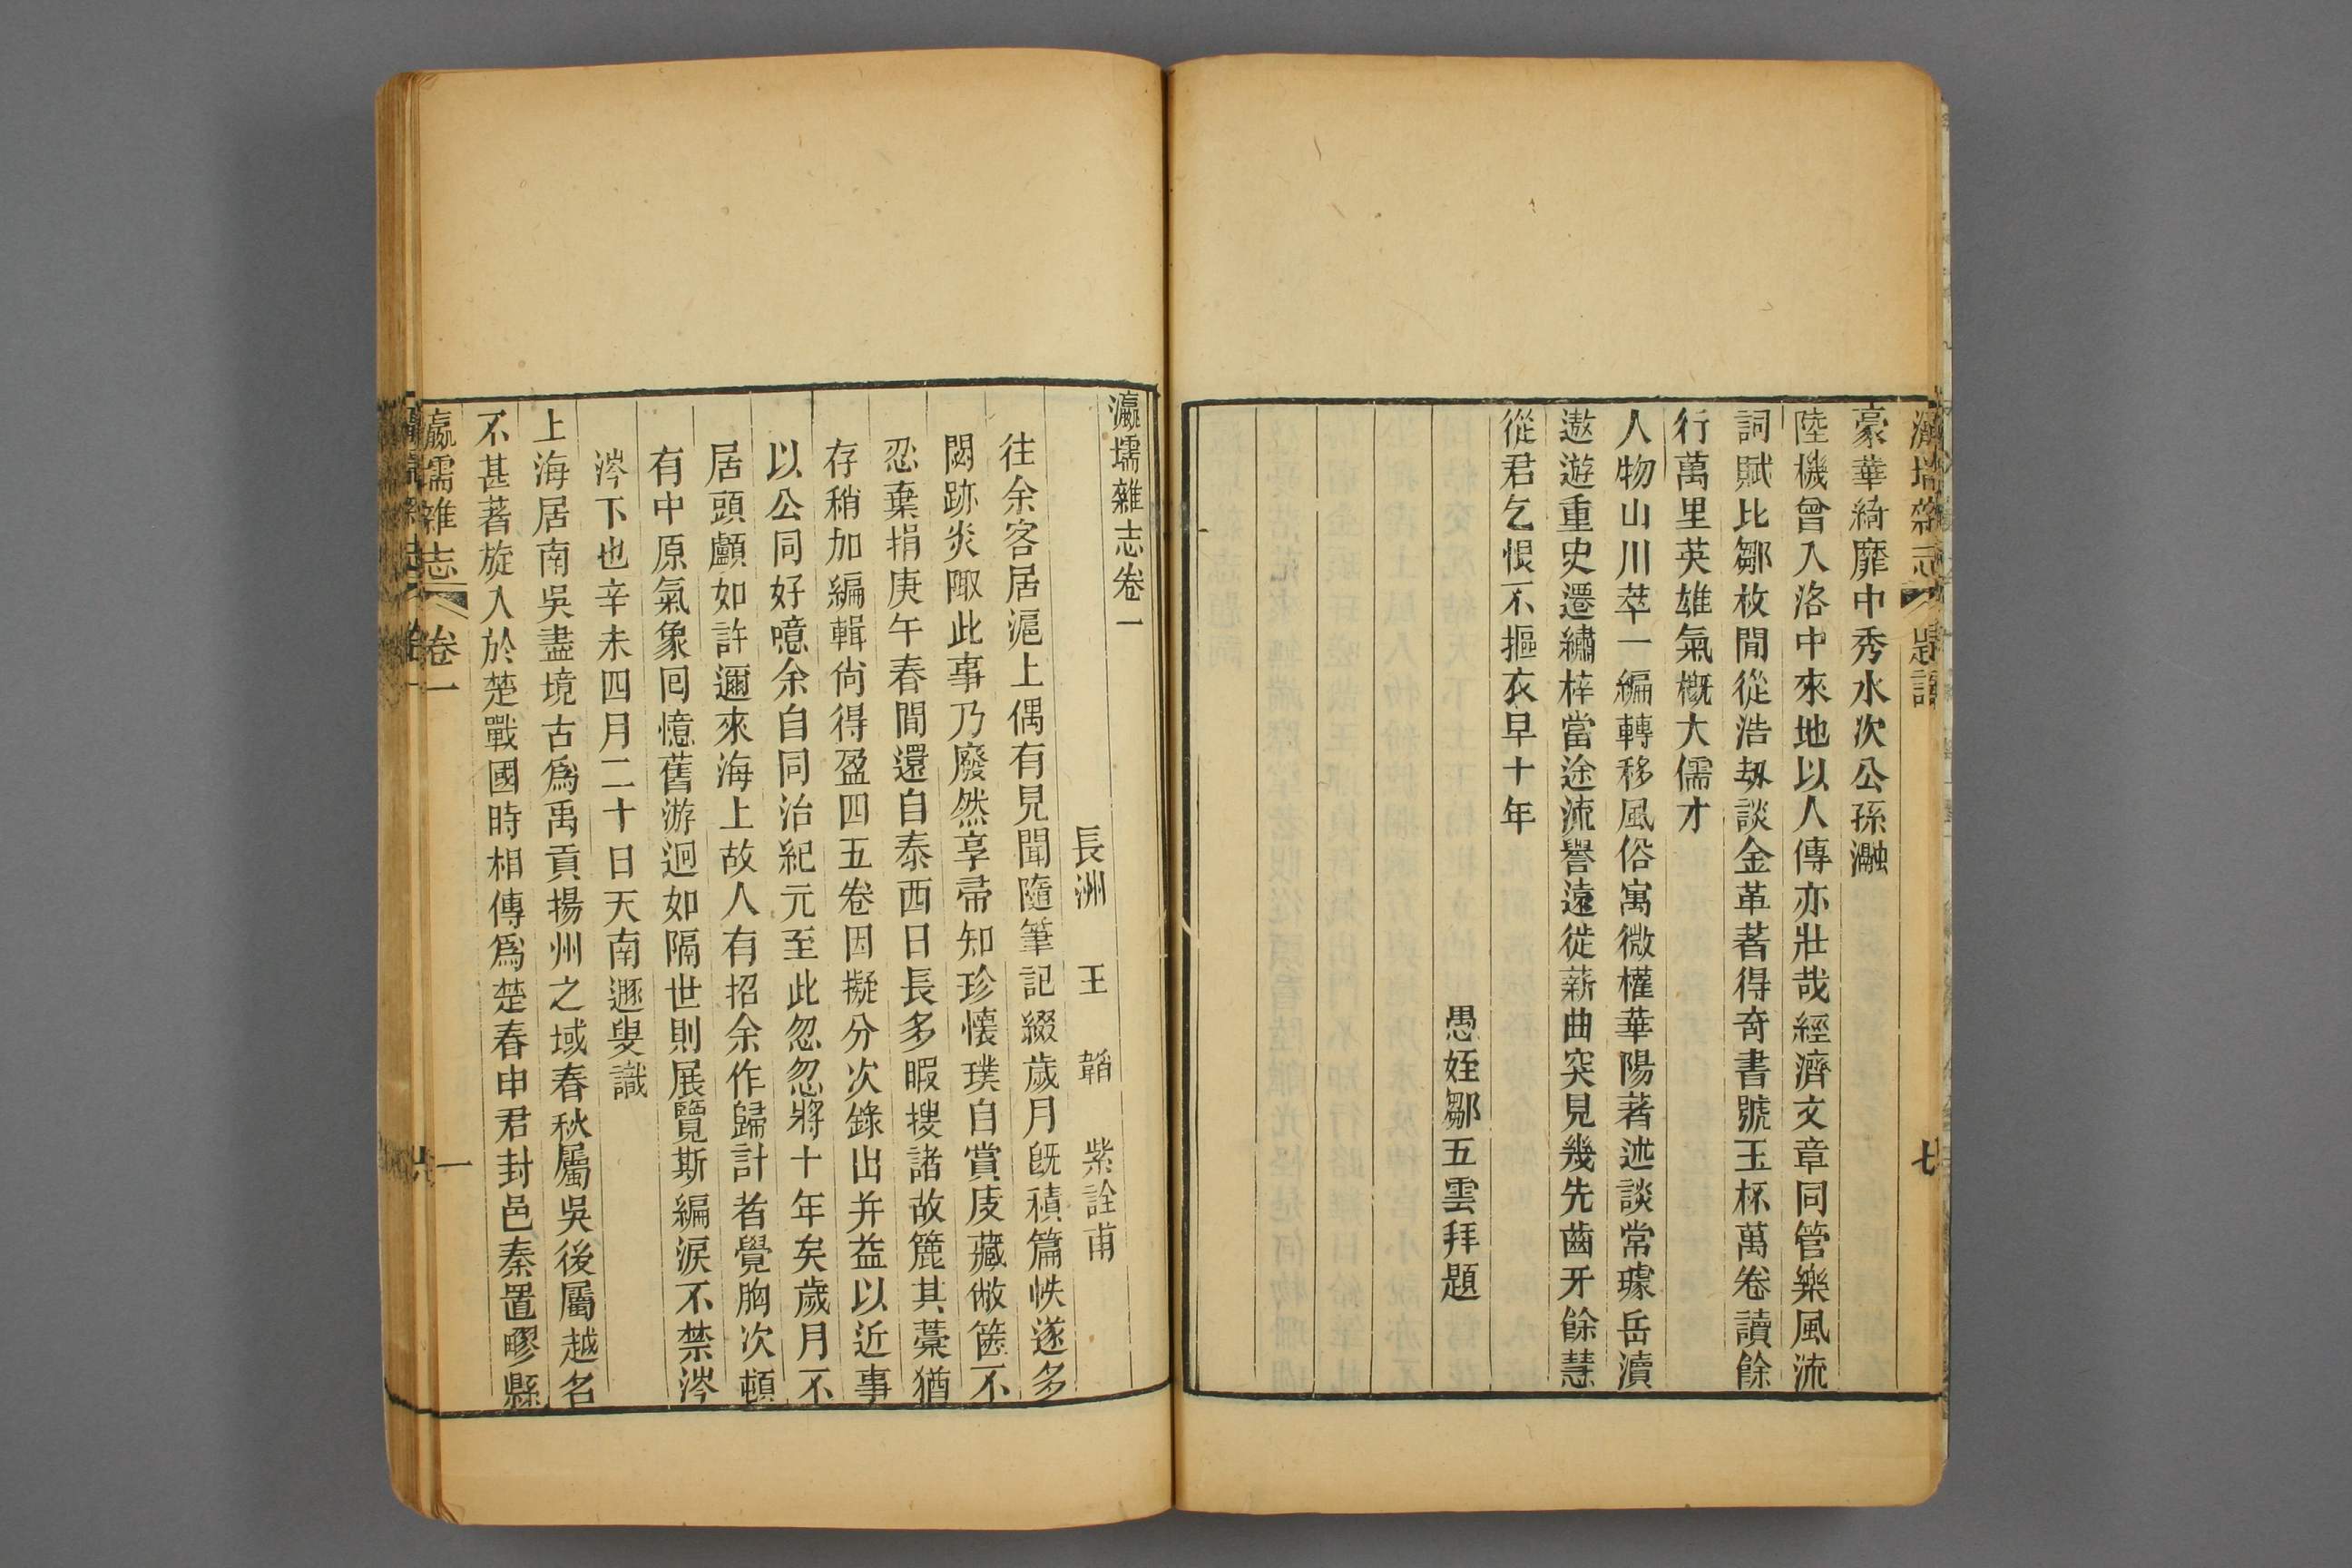 瀛壖雜志 題語 七
豪華綺靡中秀水次公孫瀜
陸機曾入洛中來地以人傳亦壯哉經濟文章同管樂風流
詞賦比鄒枚閒從浩刼談金革著得奇書號玉杯萬卷讀餘
行萬里英雄氣概大儒才
人物山川萃一編轉移風俗寓微權華陽著述談常璩岳瀆
遨遊重史遷繡梓當途流譽遠徙薪曲突見幾先齒牙餘慧
從君乞恨不摳衣早十年
愚姪鄒五雲拜題
瀛壖雜志卷一
長洲 王 韜 紫詮甫
往余客居滬上偶有見聞隨筆記綴歲月旣積篇帙遂多
閼跡炎陬此事乃廢然享帚知珍懷璞自賞庋藏敝篋不
忍棄捐庚午春間還自泰西日長多暇搜諸故簏其藁猶
存稍加編輯尙得盈四五卷因擬分次錄出并益以近事
以公同好噫余自同治紀元至此忽忽將十年矣歲月不
居頭顱如許邇來海上故人有招余作歸計者覺胸次頓
有中原氣象回憶舊游迥如隔世則展覽斯編淚不禁涔
涔下也辛未四月二十日天南遯叟識
上海居南吳盡境古爲禹貢揚州之域春秋屬吳後屬越名
不甚著旋入於楚戰國時相傳爲楚春申君封邑秦置疁縣
瀛壖雜志 卷一 一